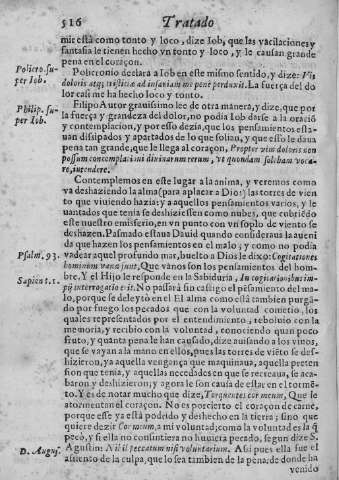 516 Tratado
mir está como tonto y loco, dize Iob, que las vacilaciones y
fantasia le tienen hecho vn tonto y loco, y le causan grande
pena en el coraçon.
Policro. su-
per Iob.
Policronio declara a Iob en este mismo sentido, y dize: Vis
doloris atq; tristitiæ ad insaniam me penè perduxit. La fuerça del do
lor casi me ha hecho loco y tonto.
Philip. su-
per Iob.
Filipo Autor grauissimo lee de otra manera, y dize, que por
la fuerça y grandeza del dolor, no podia Iob darse a la oració
y contemplacion, y por esso dezia, que los pensamientos esta-
uan dissipados y apartados de lo que solian, y que esso le daua
pena tan grande, que le llega al coraçon, Propter vim doloris non
possum contemplationi diuinarum rerum, vt quondam solebam vaca-
re, intendere.
Contemplemos en este lugar a la anima, y veremos como
va deshaziendo la alma (para aplacar a Dios) las torres de vien
to que viuiendo hazia: y a aquellos pensamientos varios, y le
uantados que tenia se deshiziessen como nubes, que cubriédo
este nuestro emisferio, en vn punto con vn soplo de viento se
deshazen. Pasmado estaua Dauid quando consideraua la aueni
da que hazen los pensamientos en el malo; y como no podia
Psalm. 93.
vadear aquel profundo mar, buelto a Dios le dixo: Cogitationes
hominum vanæ sunt, Que vanos son los pensamientos del hom-
Sapient. 1.
bre. Y el Hijo le responde en la Sabiduria, In cogitationibus im-
pij interrogatio erit. No passará sin castigo el pésamiento del ma-
lo, porque se deleytò en el El alma como està tambien purgá-
do por fuego los pecados que con la voluntad cometio, los
quales representados por el entendimiento, reboluio con la
memoria, y recibio con la voluntad, conociendo quan poco
fruto, y quanta pena le han causado, dize auisando a los viuos,
que se vayan a la mano en ellos, pues las torres de viéto se des-
hizieron, ya aquella vengança que maquinaua, aquella preten
sion que tenia, y aquellas necedades en que se recreaua, se aca-
baron y deshizieron; y agora le son causa de estar en el tormé-
to. Y es de notar mucho que dize, Torquentes cor meum, Que le
atormentan el coraçon. No es por cierto el coraçon de carne,
porque esse ya està podrido y deshecho en la tierra; sino que
quiere dezir Cor meum, a mi voluntad; como la voluntad es la q̃
pecó, y si ella no consintiera no huuiera pecado, segun dize S.
D. Augus.
Agustin: Nihil peccatum nisi voluntarium. Assi pues ella fue el
assiento de la culpa, que lo sea tambien de la pena, de donde ha
venido